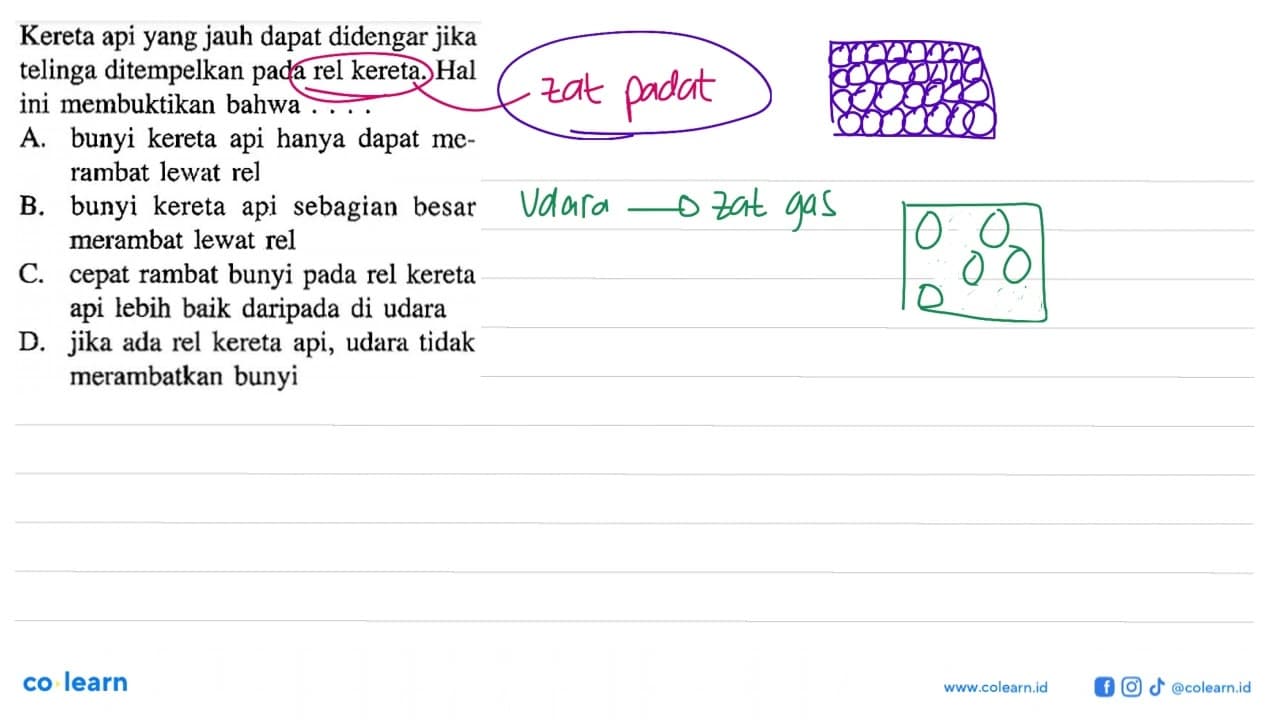 Kereta api yang jauh dapat didengar jika
telinga ditempelkan pada rel kereta. Hal
ini membuktikan bahwa . . . .
A. bunyi kereta api hanya dapat me-
rambat lewat rel
B. bunyi kereta api sebagian besar
merambat lewat rel
C. cepat rambat bunyi pada rel kereta
api lebih baik daripada di udara
D. jika ada rel kereta api, udara tidak
merambatkan bunyi
zat padat
Udara → zat gas
co learn
www.colearn.id
@colearn.id